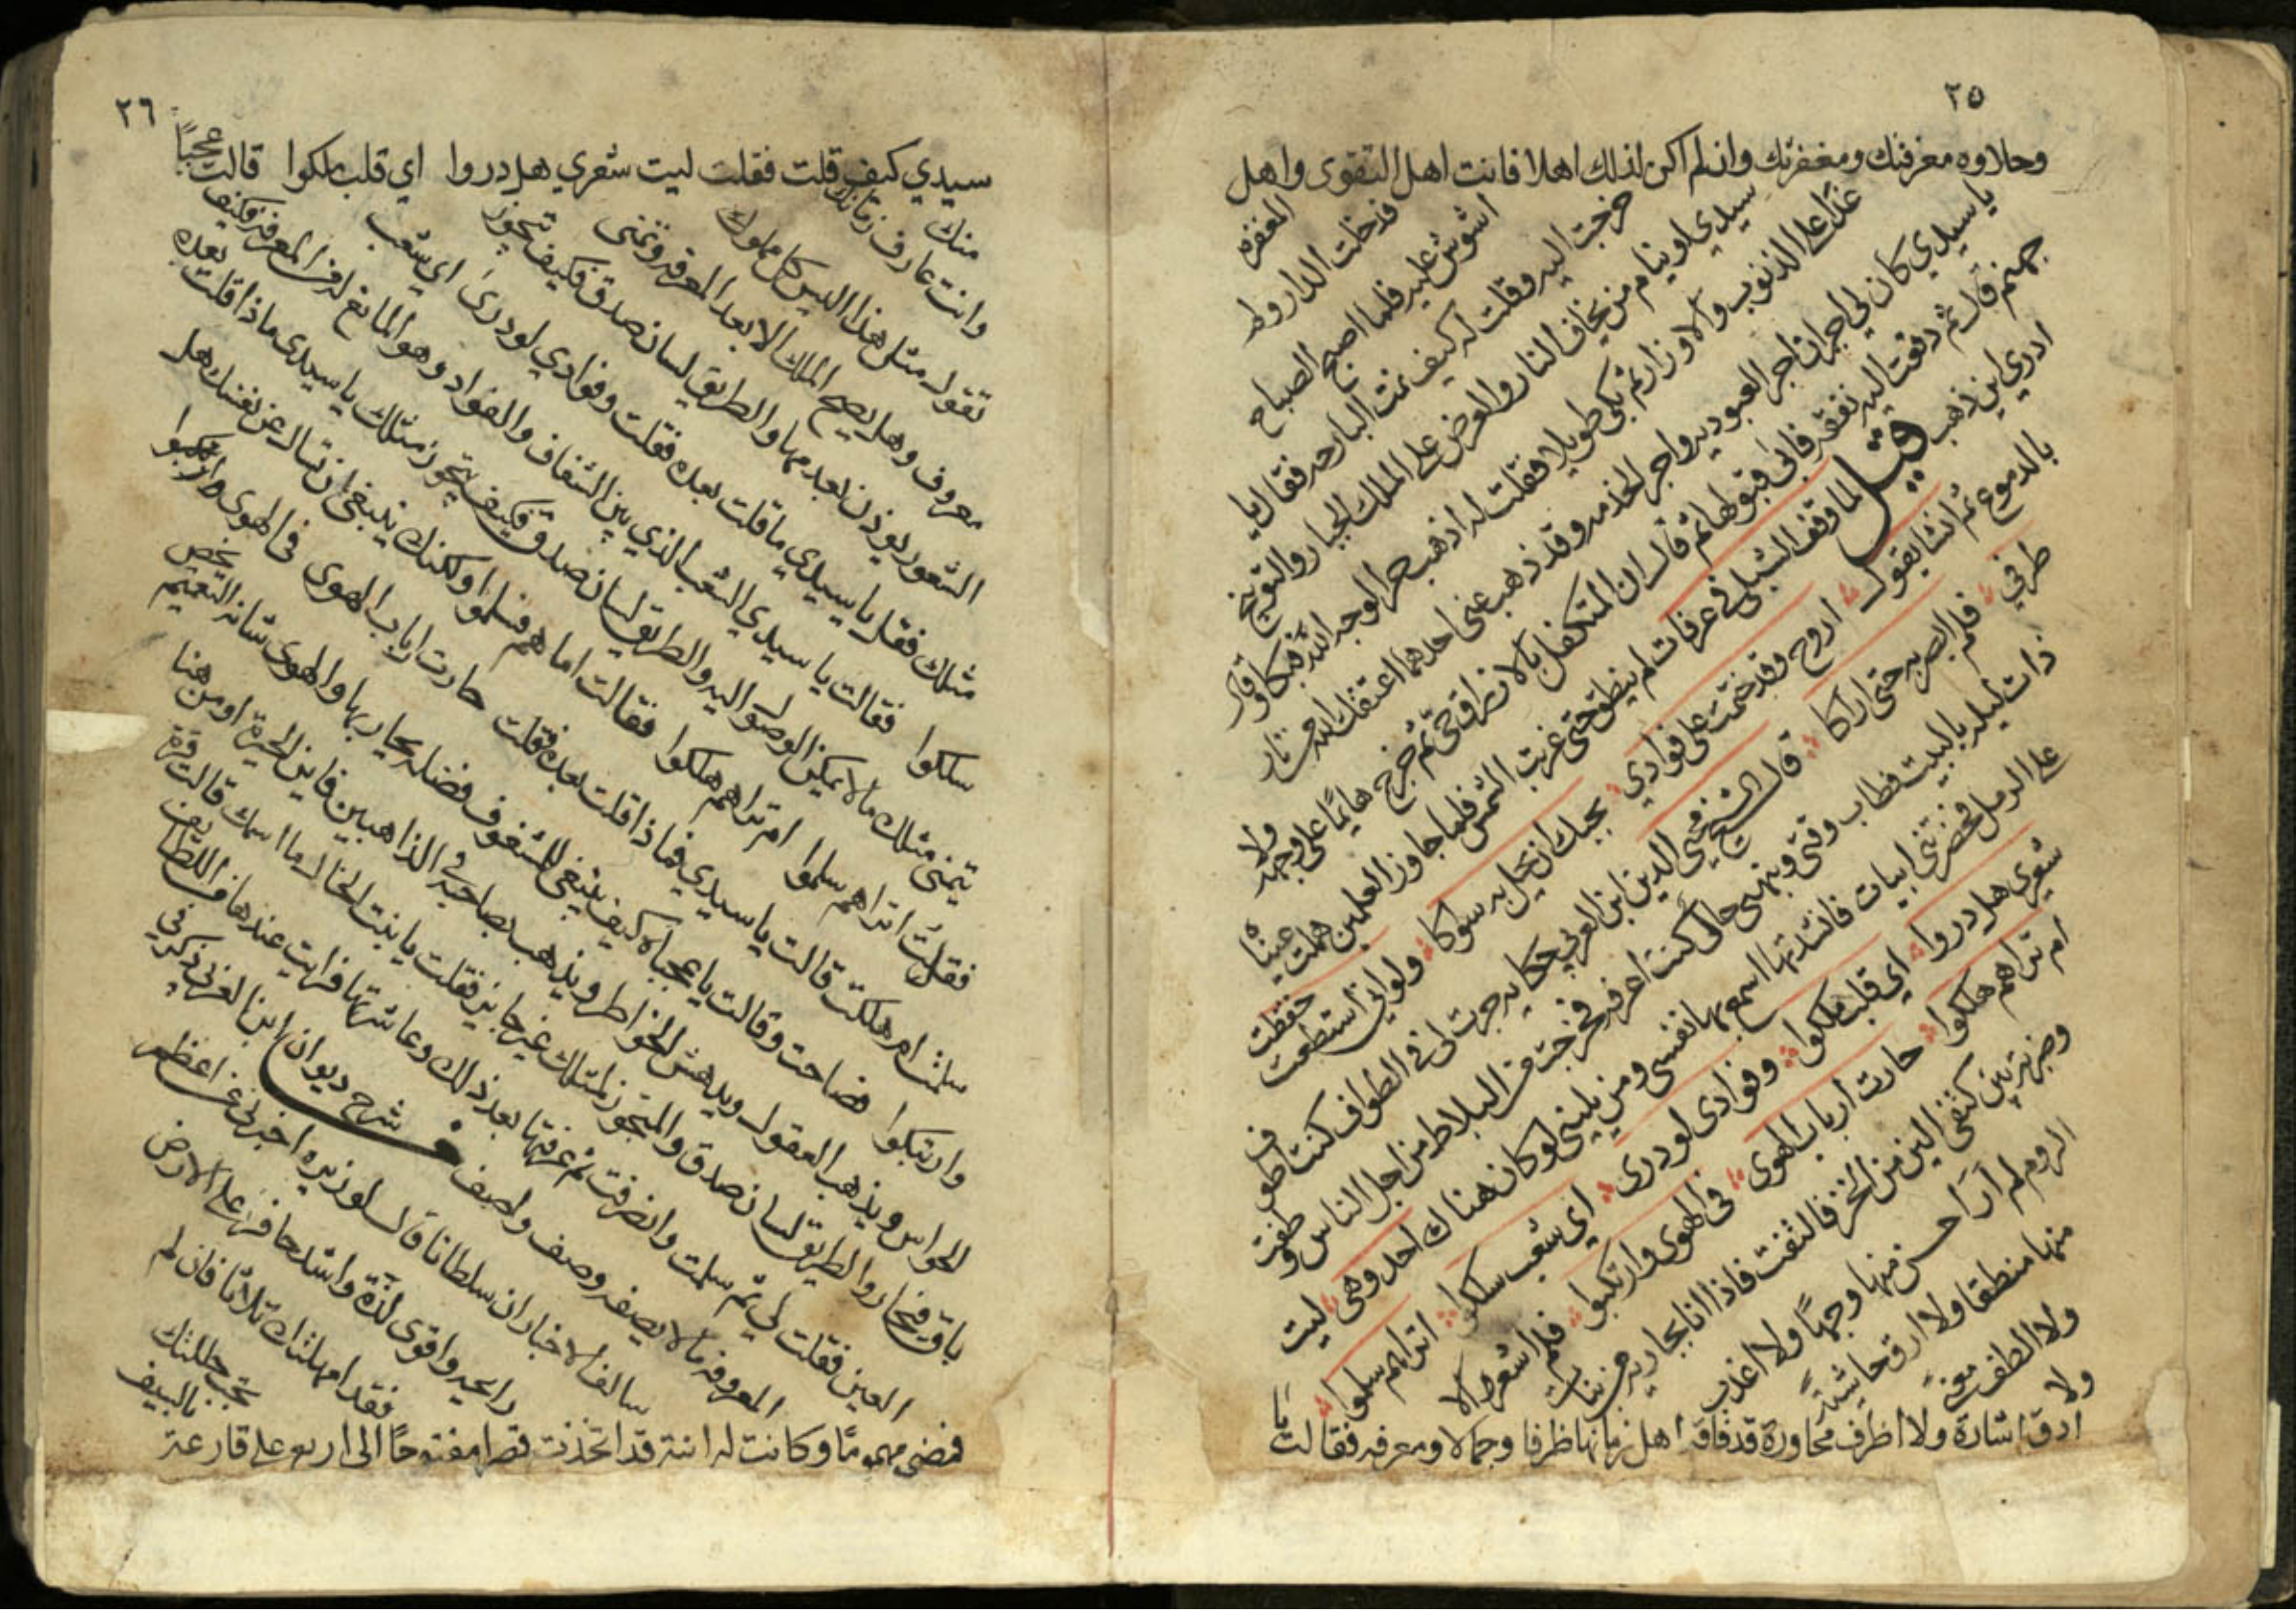 ٢٥
وحلاوه معرفتك ومغفرتك وان لم اكن لذلك اهلا فانت اهل التقوى واهل
المغفره فدخلت الدار ولم
اشوش عليه فلما اصبح الصباح
خرجت اليه وقلت له كيف نمت البارحه فقال يا
سيدي او ينام من يخاف النار والعرض على الملك الجبار والتوبيخ
غدا على الذنوب والاوزار ثم بكى طويلا فقلت له اذهب حر لوجه الله فبكا وقال
يا سيدي كان لي اجران اجر العبوديه واجر الخدمه وقد ذهب عني احدهما اعتقك الله من نار
جهنم قال ثم دفعت اليه نفقه فابى قبولها ثم قال ان المتكفل بالارزاق حي ثم خرج هايما على وجهه ولا
ادري اين ذهب قيل لما وقف الشبلي في عرفات لم ينطق حتى غربت الشمس فلما جاوز العلمين هملت عيناه
بالدموع ثم انشا يقول اروح وقد ختمت على فوادي بحبك ان يحل به سوكا ولو اني استطعت حفظت
طرفي فلم ابصر به حتى اراكا قال الشيخ محيي الدين ابن العربي حكايه جرت لي في الطواف كنت اطوف
ذات ليله بالبيت فطاب وقتي وهزني حال كنت اعرفه فخرجت من البلاط من اجل الناس وطفت
على الرمل فحضرتني ابيات فانشدتها اسمع بها نفسي ومن يليني لو كان هناك احد وهي ليت
شعري هل دروا اي قلب ملكوا وفوادى لو درى اي شعب سلكوا اتراهم سلموا
ام تراهم هلكوا حارت أرباب الهوى فى الهوى وارتبكوا فلم اشعر الا
وضربة بين كتفى الين من الخز فالتفت فاذا انا بجاريه من بنات
الروم لم أر احسن منها وجهًا ولا اعذب
منها منطقا ولا ارق حاشيةً
ولا الطف معنىً ولا
ادق اشارة ولا اظرف محاورة قد فاقت اهل زمانها ظرفا وجمالا ومعرفه فقالت يا
٢٦
سيدي كيف قلت فقلت ليت شعري هل دروا اي قلب ملكوا قالت عجباً
منك وانت عارف زمانك
تقول مثل هذا اليس كل مملوك
معروف وهل يصح الملك الا بعد المعرفه وتمنى
الشعور يوذن بعدمها والطريق لسان صدق فكيف تتجوز
مثلك فقل يا سيدي ما قلت بعده فقلت وفوادي لو درىَ اي شعب
سلكوا فقالت يا سيدي الشعب الذي بين الشغاف والفواد وهو المانع له من المعرفه فكيف
يتمنى مثلك ما لا يمكن الوصول اليه والطريق لسان صدق فكيف يتجوز مثلك يا سيدى ماذا قلت بعده
فقلت اتراهم سلموا ام تراهم هلكوا فقالت اما هم فسلموا ولكنك ينبغي ان تسال عن نفسك هل
سلمت ام هلكت قالت يا سيدي فماذا قلت بعده فقلت حارت ارباب الهوى فى الهوى وارتبكوا
وارتبكوا فصاحت وقالت يا عجباه كيف يبقى للمشغوف فضله يحار بها والهوى شانه التعميم يخص
الحواس ويذهب العقول ويدهش الخواطر ويذهب بصاحبه في الذاهبين فاين الحيرة او من هنا
باق فيحار والطريق لسان صدق والتجوز لمثلك غير جايز فقلت يا بنت الخاله ما اسمك قالت قرة
العين فقلت لي ثم سلمت وانصرفت ثم عرفتها بعد ذلك وعاشرتها فرايت عندها من اللطايف
المعروفه ما لا يصفه وصف واصف شرح ديوان ابن العربي ذكر في
سالف الاخبار ان سلطانا قال لوزيره اخبرني عن اعظم
رايحه واقوى لذّة واشد حافر على الارض
فقد امهلتك ثلاثا فان لم
تجب جللتك بالسيف
فمضى مهموما وكانت له ابنة قد اتخذت قصرا مفتوحا الى اربع على قارعة